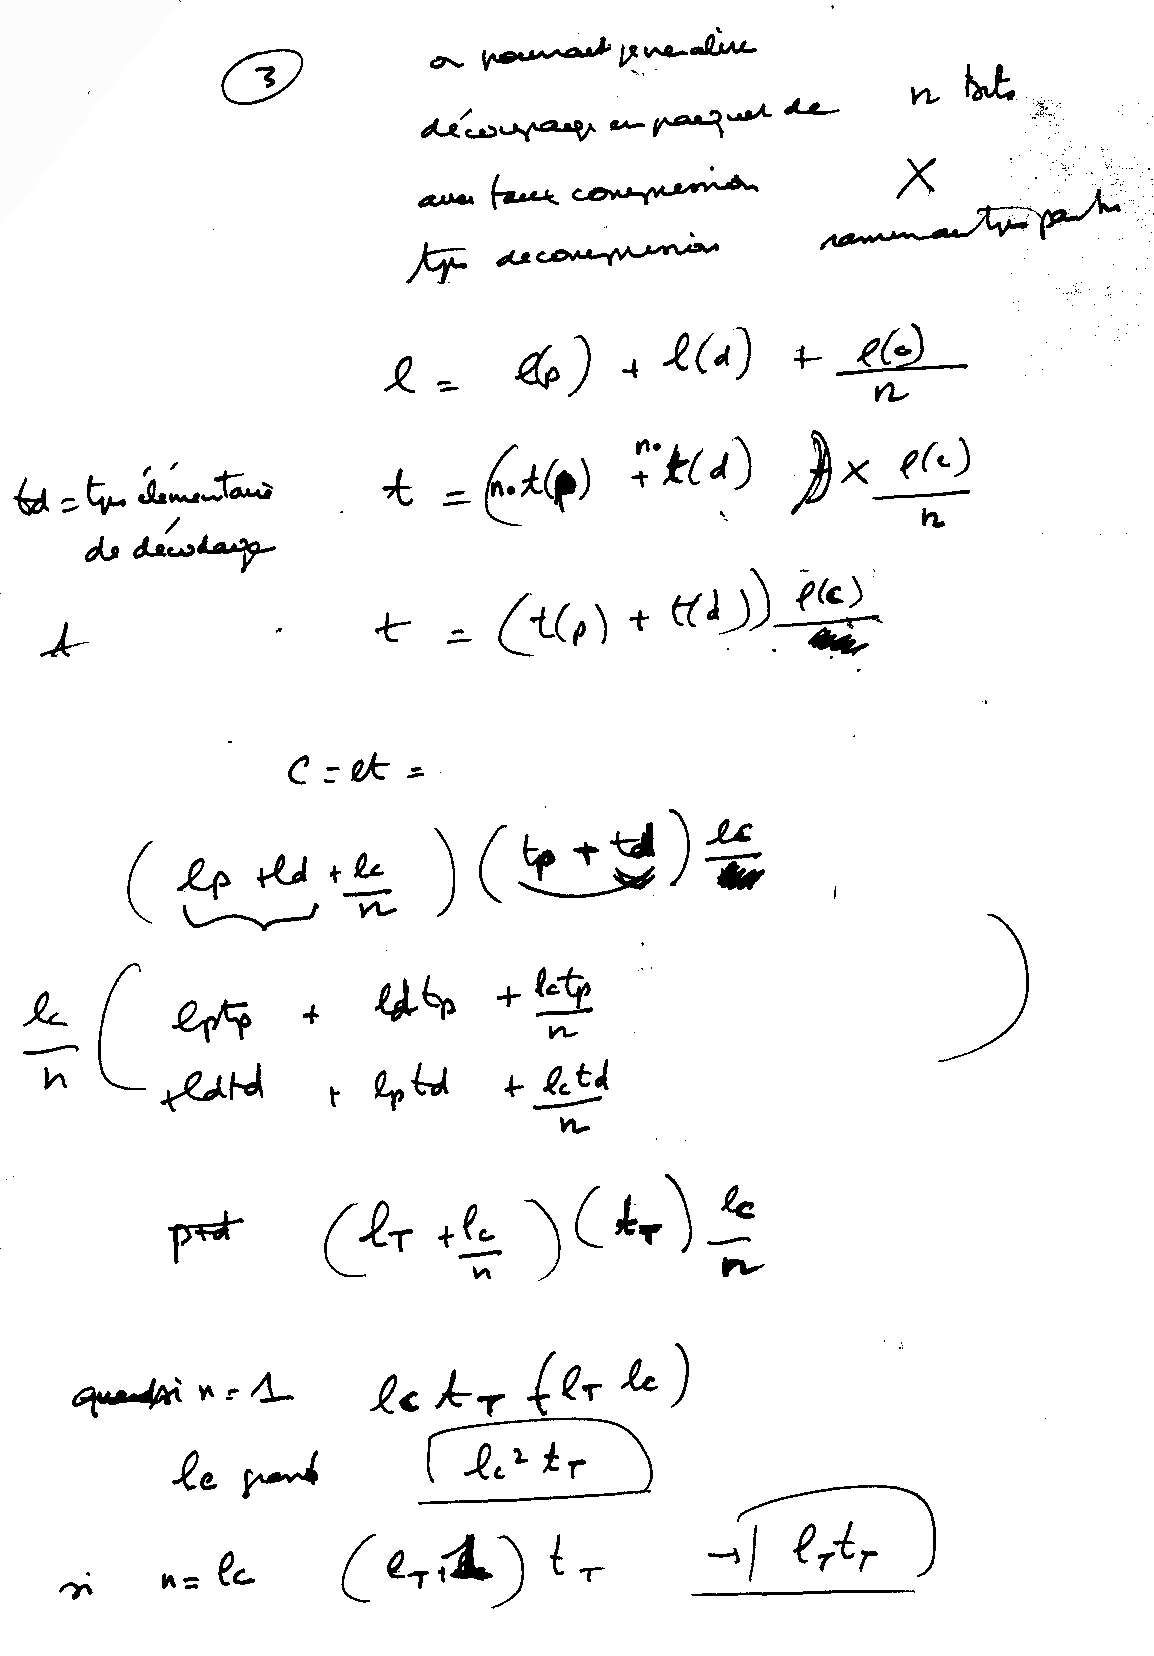 3
on pourrait generaliser
découpage en paquet de n bits
avec taux compression X
tps decompression ramene au tps par bit
l = l(p) + l(d) + l(c)/n
t = (n.t(p) + n.t(d)) × l(c)/n
td = tps élémentaire
de décodage
t = (t(p) + t(d)) l(c)
C = lt =
(lp + ld + lc/n) (tp + td) lc
lc/n ( lptp + ldtp + lctp/n
+ldtd + lptd + lctd/n )
p+d (lT + lc/n) (tT) lc/n
si n = 1 lc tT (lT lc)
lc grand lc² tT
si n = lc (lT+1) tT → lT tT